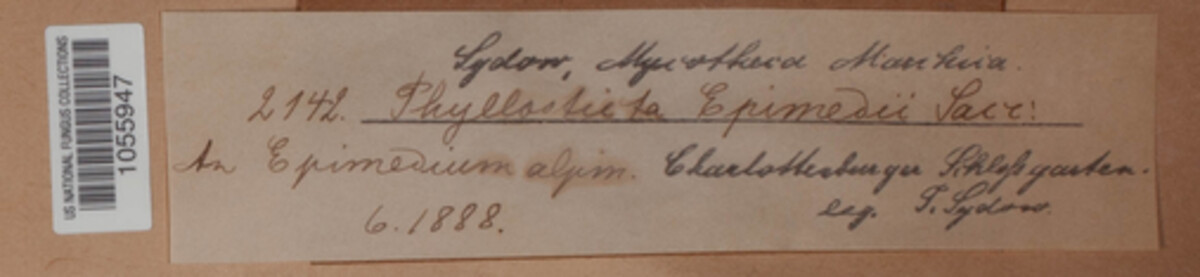 US NATIONAL FUNGUS COLLECTIONS
1055947
Sydow, Mycotheca Marchica.
2142. Phyllosticta Epimedii Sacc:
An Epimedium alpin. Charlottenburger Schloßgarten.
6.1888. leg. P. Sydow.